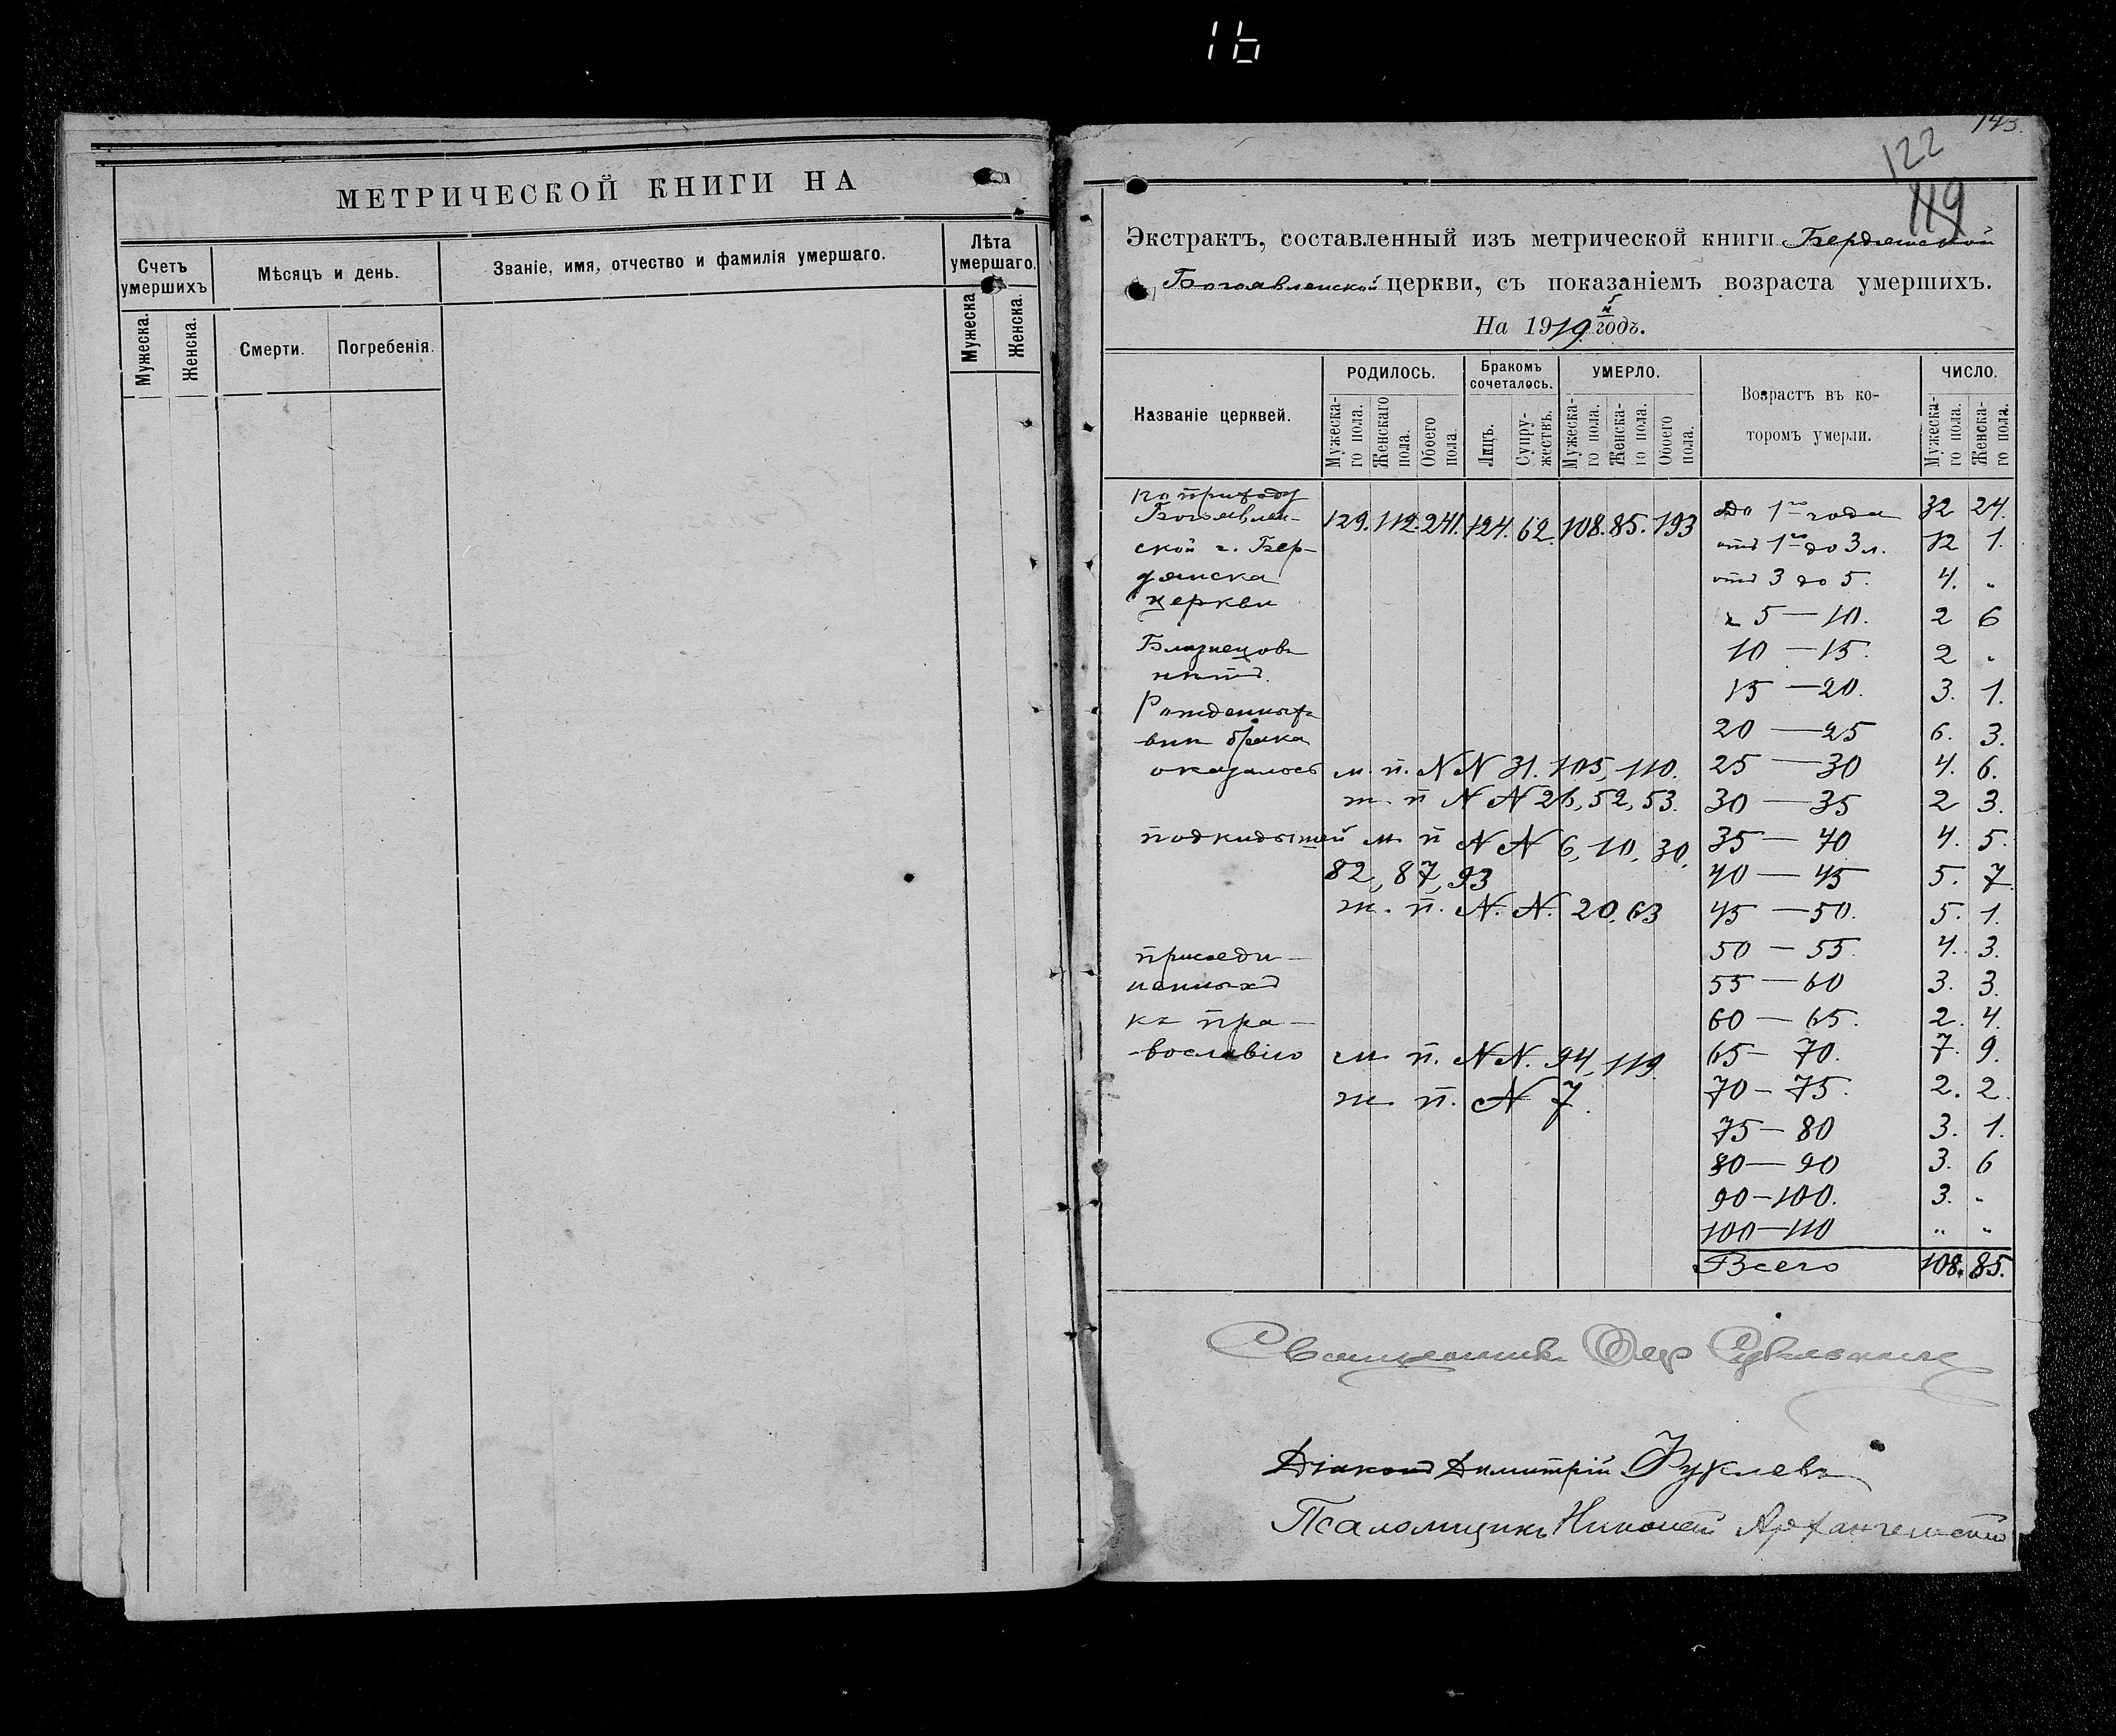 16
МЕТРИЧЕСКОЙ КНИГИ НА
Счетъ умершихъ
Мѣсяцъ и день.
Званіе, имя, отчество и фамилія умершаго.
Лѣта умершаго.
Мужеска.
Женска.
Смерти.
Погребенія.
Мужеска
Женска.
143.
122
119
Экстрактъ, составленный изъ метрической книги Бердянской
Богоявленской церкви, съ показаніемъ возраста умершихъ.
На 1919 й годъ.
Названіе церквей.
РОДИЛОСЬ.
Бракомъ сочеталось.
УМЕРЛО.
Возрастъ въ которомъ умерли.
ЧИСЛО.
Мужескаго пола.
Женскаго пола.
Обоего пола.
Лицъ.
Супружествъ.
Мужескаго пола.
Женскаго пола.
Обоего пола.
Мужескаго пола.
Женскаго пола.
по приходу
Богоявлен-
129. 112. 241. 124. 62. 108. 85. 193
До 1го года 32 24.
ской г. Бер-
отъ 1го до 3 л. 12 1.
дянска
отъ 3 до 5. 4. "
церкви
" 5 — 10. 2 6
Близнецовъ
10 — 15. 2 "
нѣтъ.
15 — 20. 3. 1.
Рожденныхъ
20 — 25 6. 3.
внѣ брака
оказалось м. п. NN 31. 105, 110. 25 — 30 4. 6.
ж. п NN 26, 52, 53. 30 — 35 2 3.
подкидышей м. п NN 6, 10, 30, 35 — 40 4. 5.
82, 87, 93 40 — 45 5. 7
ж. п. N. N. 20. 63 45 — 50. 5. 1.
присоеди- 50 — 55. 4. 3.
ненныхъ 55 — 60 3. 3.
къ пра- 60 — 65. 2. 4.
-вославію м. п. NN. 94, 119. 65 — 70. 7. 9.
ж. п. N 7. 70 — 75. 2. 2.
75 — 80 3. 1.
80 — 90 3. 6
90 — 100. 3. "
100 — 110 " "
Всего 108. 85.
Священникъ
Діаконъ Димитрій
Псаломщикъ Николай Архангельскій